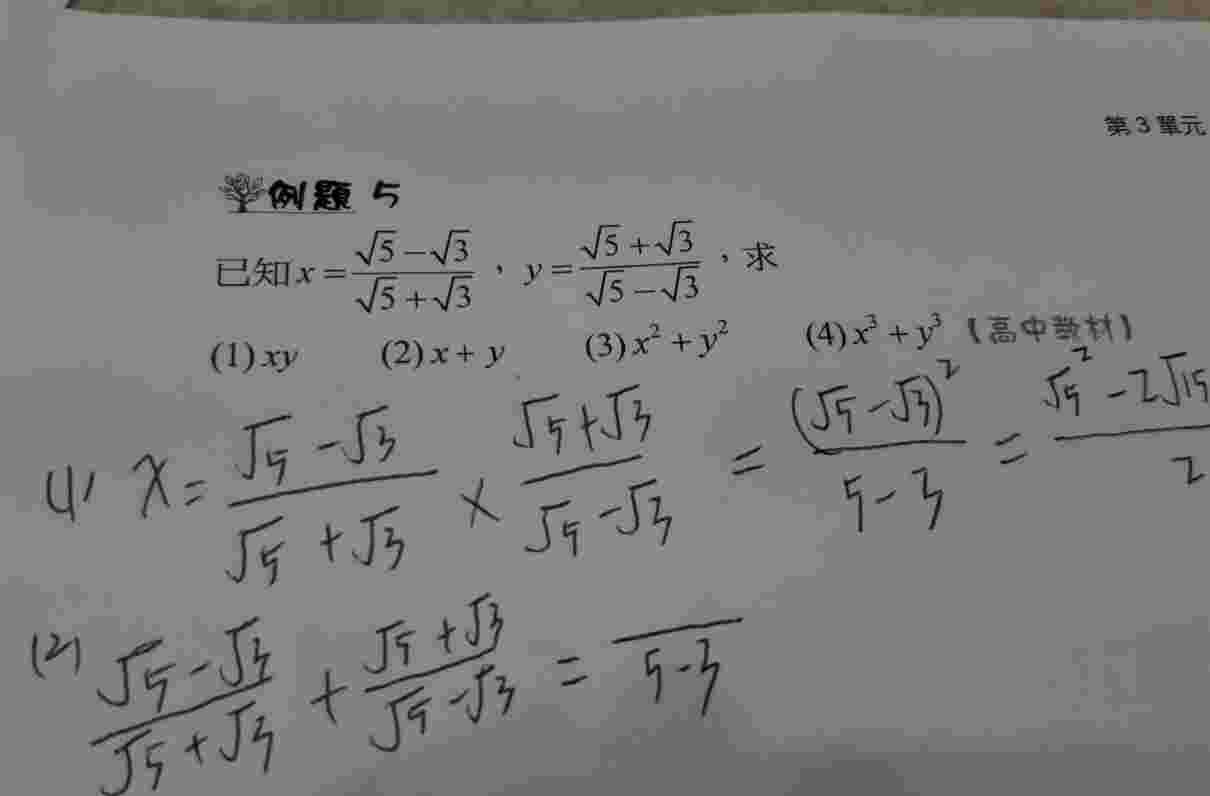 第3單元
例題 5
已知 x = (√5 − √3)/(√5 + √3) ,y = (√5 + √3)/(√5 − √3) ,求
(1) xy (2) x + y (3) x² + y² (4) x³ + y³ 【高中教材】
(1) x = (√5 − √3)/(√5 + √3) × (√5 + √3)/(√5 − √3) = (√5 − √3)²/(5 − 3) = (√5² − 2√15)/2
(2) (√5 − √3)/(√5 + √3) + (√5 + √3)/(√5 − √3) = /(5 − 3)